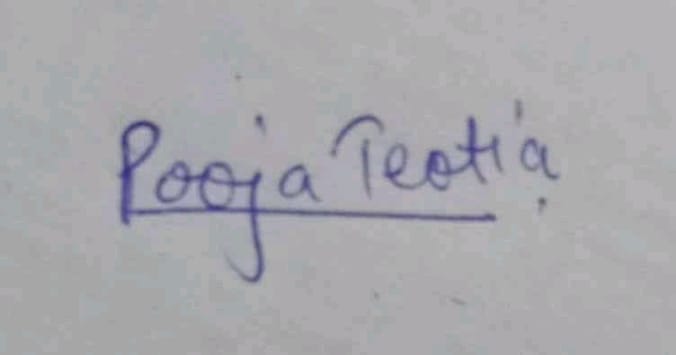 Pooja Teotia